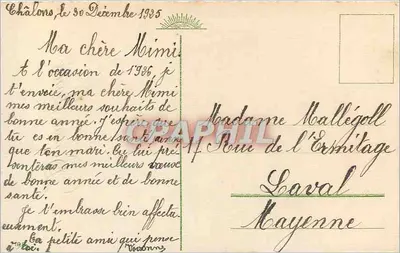 Châlons, le 30 Décembre 1935
Ma chère Mimi.
A l'occasion de 1936, je
t'envoie, ma chère Mimi
mes meilleurs souhaits de
bonne année. J'espère que
tu es en bonne santé ainsi
que ton mari. Tu lui pré
senteras mes meilleurs vœux
de bonne année et de bonne
santé.
Je t'embrasse bien affectu
eusement.
Ta petite amie qui pense
à toi. Yvonne
Madame Mallégoll
17 Rue de l'Ermitage
Laval
Mayenne
CPAPHIL